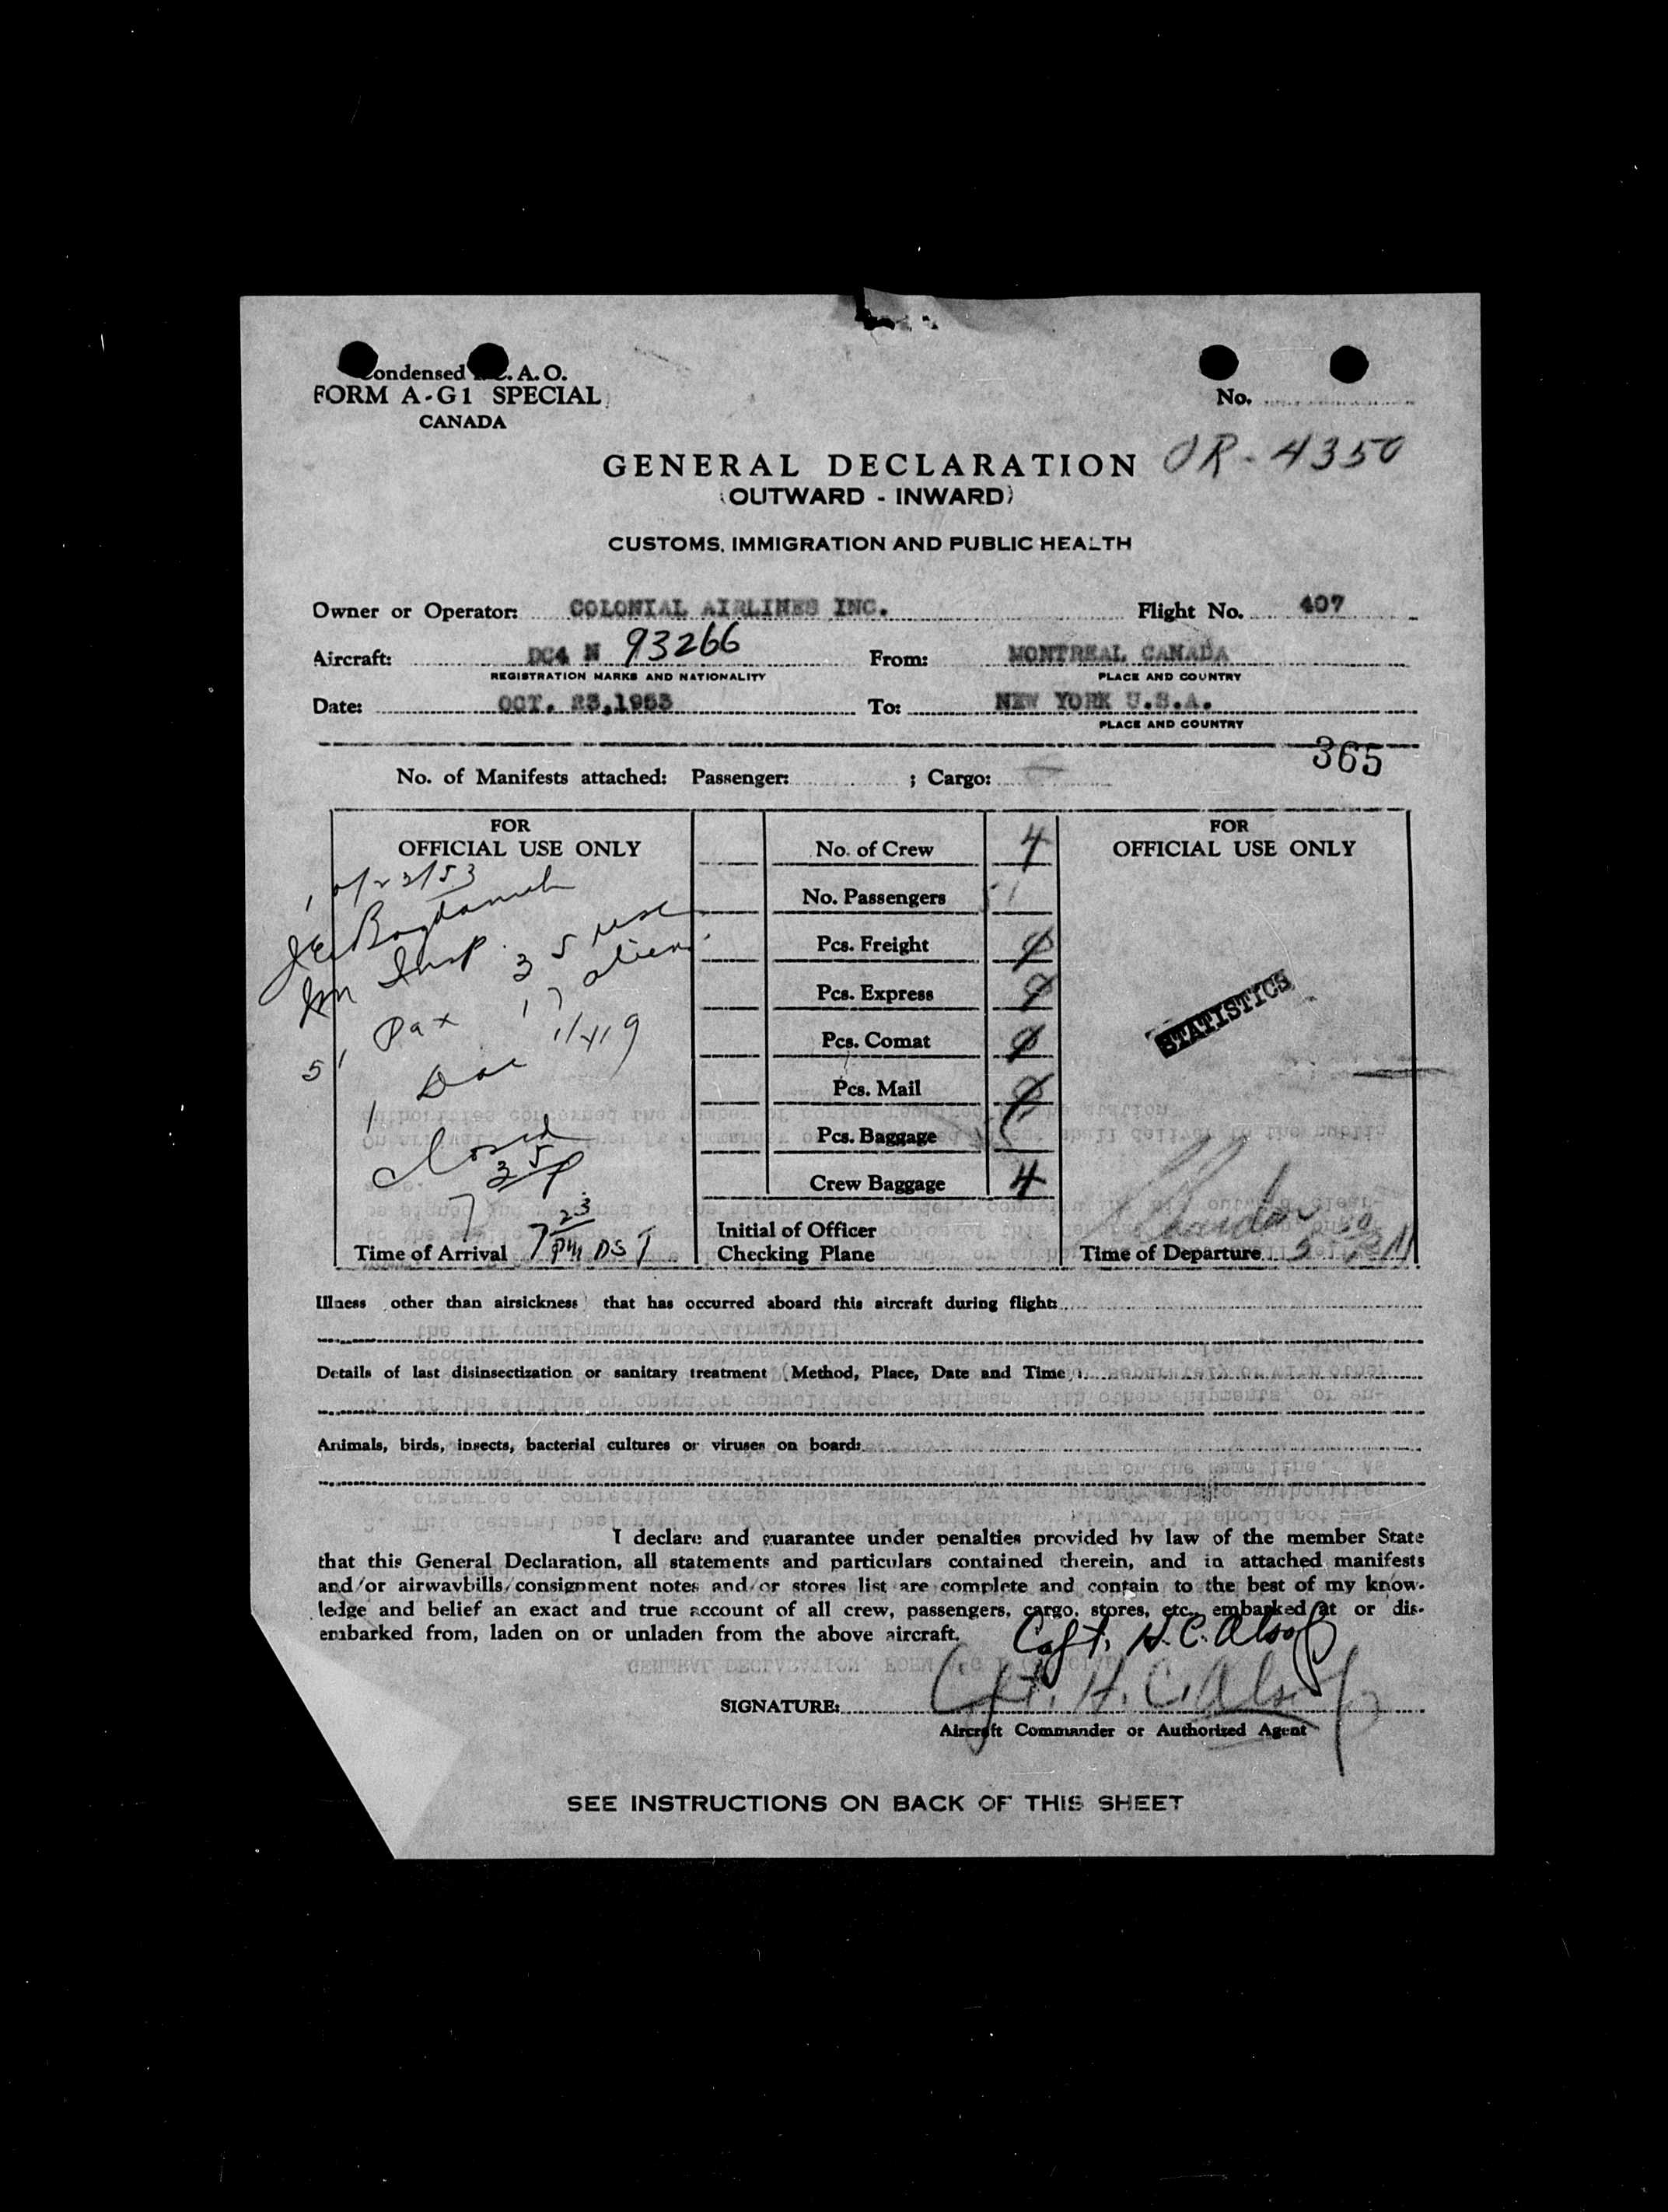 Condensed I.C.A.O.
FORM A-G1 SPECIAL
CANADA
No.
GENERAL DECLARATION OR-4350
(OUTWARD - INWARD)
CUSTOMS, IMMIGRATION AND PUBLIC HEALTH
Owner or Operator: COLONIAL AIRLINES INC. Flight No. 407
Aircraft: DC4 N 93266 From: MONTREAL CANADA
REGISTRATION MARKS AND NATIONALITY PLACE AND COUNTRY
Date: OCT. 23,1953 To: NEW YORK U.S.A.
PLACE AND COUNTRY
365
No. of Manifests attached: Passenger: ; Cargo:
FOR
OFFICIAL USE ONLY
10/23/53
Im Insp.
51 Pax 35 usc
17 aliens
1 Doc 1/419
Closed
7 35 P
Time of Arrival 7 23 PM DST
No. of Crew 4
No. Passengers 51
Pcs. Freight 0
Pcs. Express 0
Pcs. Comat 0
Pcs. Mail 0
Pcs. Baggage
Crew Baggage 4
Initial of Officer
Checking Plane
FOR
OFFICIAL USE ONLY
STATISTICS
Time of Departure 5
Illness other than airsickness that has occurred aboard this aircraft during flight:
Details of last disinsectization or sanitary treatment (Method, Place, Date and Time):
Animals, birds, insects, bacterial cultures or viruses on board:
I declare and guarantee under penalties provided by law of the member State
that this General Declaration, all statements and particulars contained therein, and in attached manifests
and/or airwaybills/consignment notes and/or stores list are complete and contain to the best of my know-
ledge and belief an exact and true account of all crew, passengers, cargo, stores, etc., embarked at or dis-
embarked from, laden on or unladen from the above aircraft.
Capt. H.C. Alsop
SIGNATURE: Cpt. H.C. Alsop
Aircraft Commander or Authorized Agent
SEE INSTRUCTIONS ON BACK OF THIS SHEET